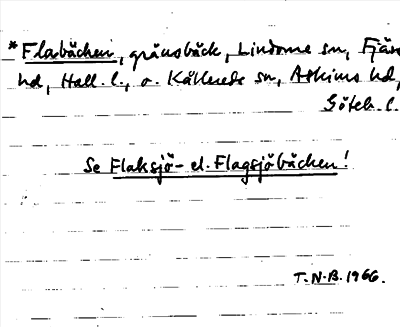 *Flabäcken, gränsbäck, Lindome sn, Fjäre
hd, Hall. l., o. Kållereds sn, Askims hd,
Göteb. l.
Se Flaksjö- el. Flagsjöbäcken!
T.N.B. 1966.